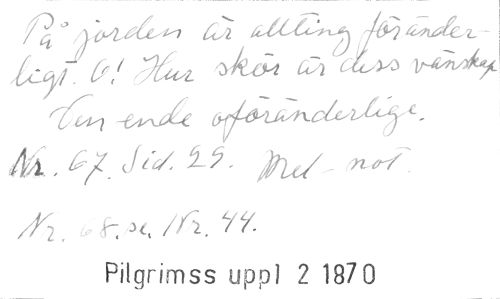 På jorden är allting föränder-
ligt. O! Hur skör är dess vänskap
Den ende oföränderlige.
Nr. 67. Sid. 29. Mel-not.
Nr. 68. se. Nr. 44.
Pilgrimss uppl 2 1870